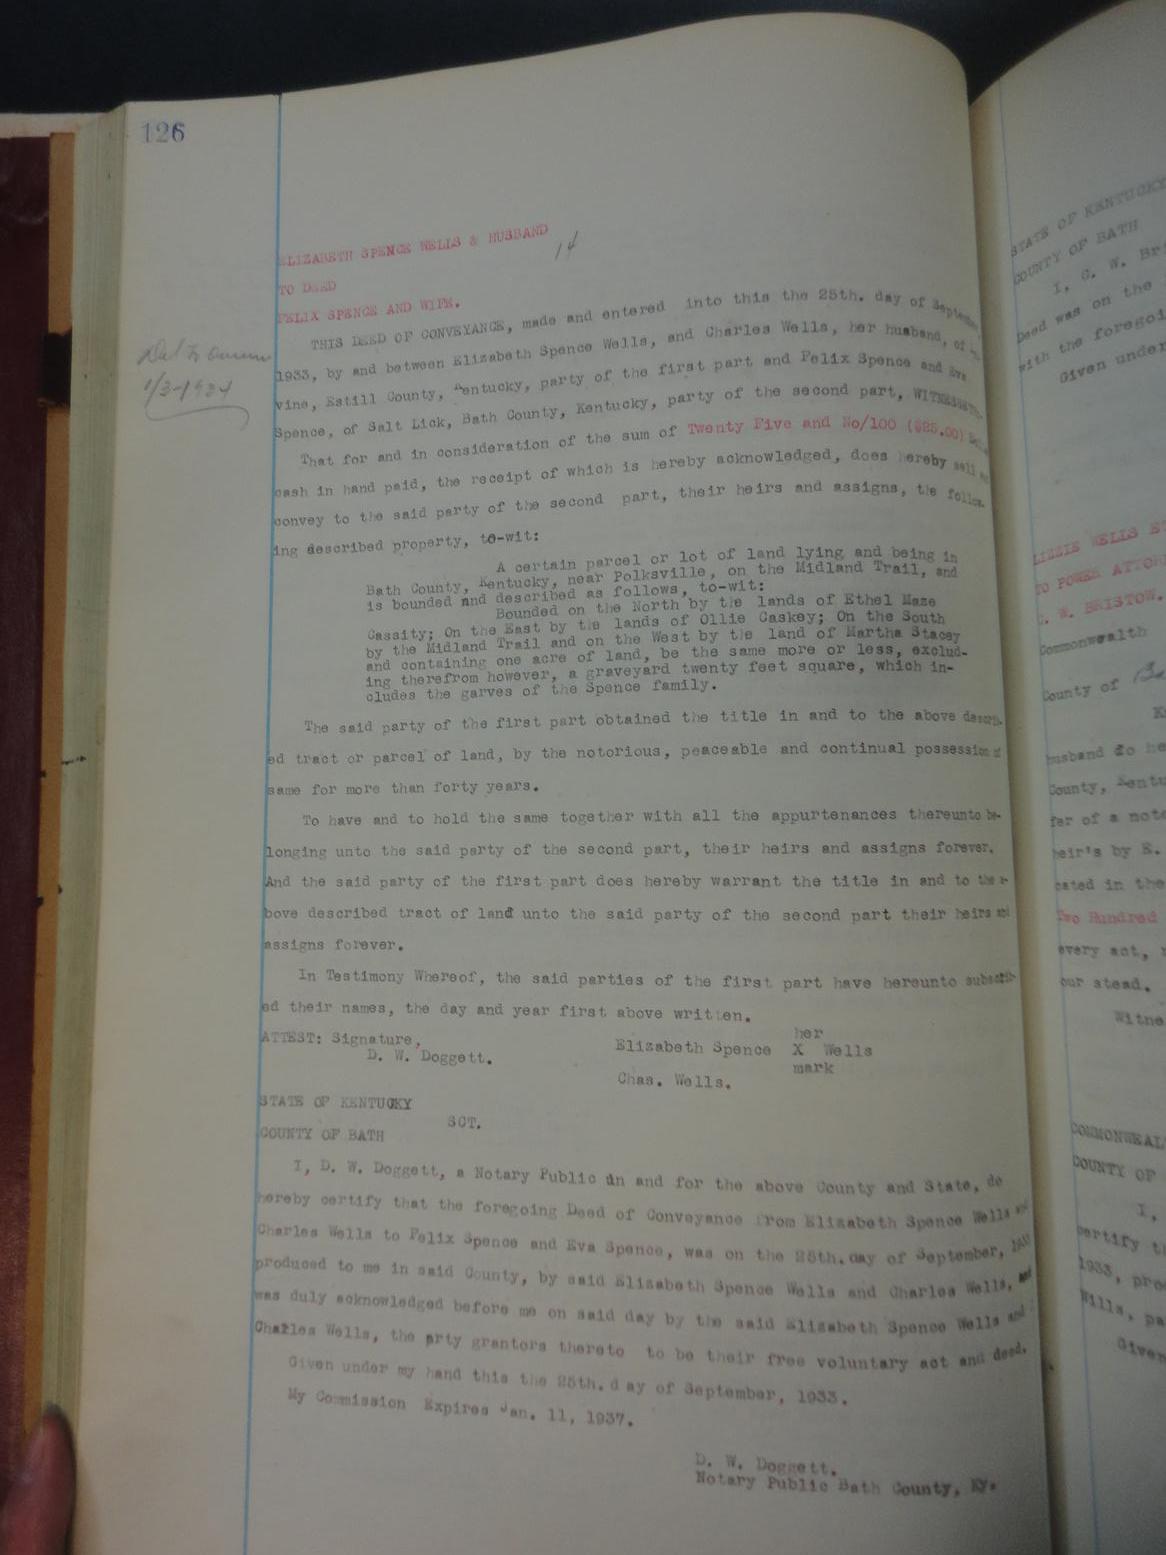 126
ELIZABETH SPENCE WELLS & HUSBAND
14
TO DEED
FELIX SPENCE AND WIFE.
THIS DEED OF CONVEYANCE, made and entered into this the 25th. day of September
1933, by and between Elizabeth Spence Wells, and Charles Wells, her husband, of
vine, Estill County, Kentucky, party of the first part and Felix Spence and Eva
Spence, of Salt Lick, Bath County, Kentucky, party of the second part, WITNESSETH.
That for and in consideration of the sum of Twenty Five and No/100 ($25.00)
cash in hand paid, the receipt of which is hereby acknowledged, does hereby sell
convey to the said party of the second part, their heirs and assigns, the follow-
ing described property, to-wit:
A certain parcel or lot of land lying and being in
Bath County, Kentucky, near Polksville, on the Midland Trail, and
is bounded and described as follows, to-wit:
Bounded on the North by the lands of Ethel Maze
Cassity; On the East by the lands of Ollie Caskey; On the South
by the Midland Trail and on the West by the land of Martha Stacey
and containing one acre of land, be the same more or less, exclud-
ing therefrom however, a graveyard twenty feet square, which in-
cludes the garves of the Spence family.
The said party of the first part obtained the title in and to the above describ-
ed tract or parcel of land, by the notorious, peaceable and continual possession of
same for more than forty years.
To have and to hold the same together with all the appurtenances thereunto be-
longing unto the said party of the second part, their heirs and assigns forever.
And the said party of the first part does hereby warrant the title in and to the a-
bove described tract of land unto the said party of the second part their heirs and
assigns forever.
In Testimony Whereof, the said parties of the first part have hereunto subscrib-
ed their names, the day and year first above written.
ATTEST: Signature,
D. W. Doggett.
her
Elizabeth Spence X Wells
mark
Chas. Wells.
STATE OF KENTUCKY
SCT.
COUNTY OF BATH
I, D. W. Doggett, a Notary Public in and for the above County and State, do
hereby certify that the foregoing Deed of Conveyance from Elizabeth Spence Wells and
Charles Wells to Felix Spence and Eva Spence, was on the 25th. day of September, 1933
produced to me in said County, by said Elizabeth Spence Wells and Charles Wells, and
was duly acknowledged before me on said day by the said Elizabeth Spence Wells and
Charles Wells, the arty grantors thereto to be their free voluntary act and deed.
Given under my hand this the 25th. d ay of September, 1933.
My Commission Expires Jan. 11, 1937.
D. W. Doggett.
Notary Public Bath County, Ky.
1/3-1934
STATE OF KENTUCKY
COUNTY OF BATH
I, C. W. Br
Deed was on the
with the foregoi
Given under
LIZZIE WELLS E
TO POWER ATTOR
C. W. BRISTOW.
Commonwealth
County of
husband do he
County, Kentu
fer of a note
heir's by E.
cated in the
Two Hundred
every act,
our stead.
Witne
COMMONWEAL
COUNTY OF
I,
certify th
1933, prod
Wills, pa
Given